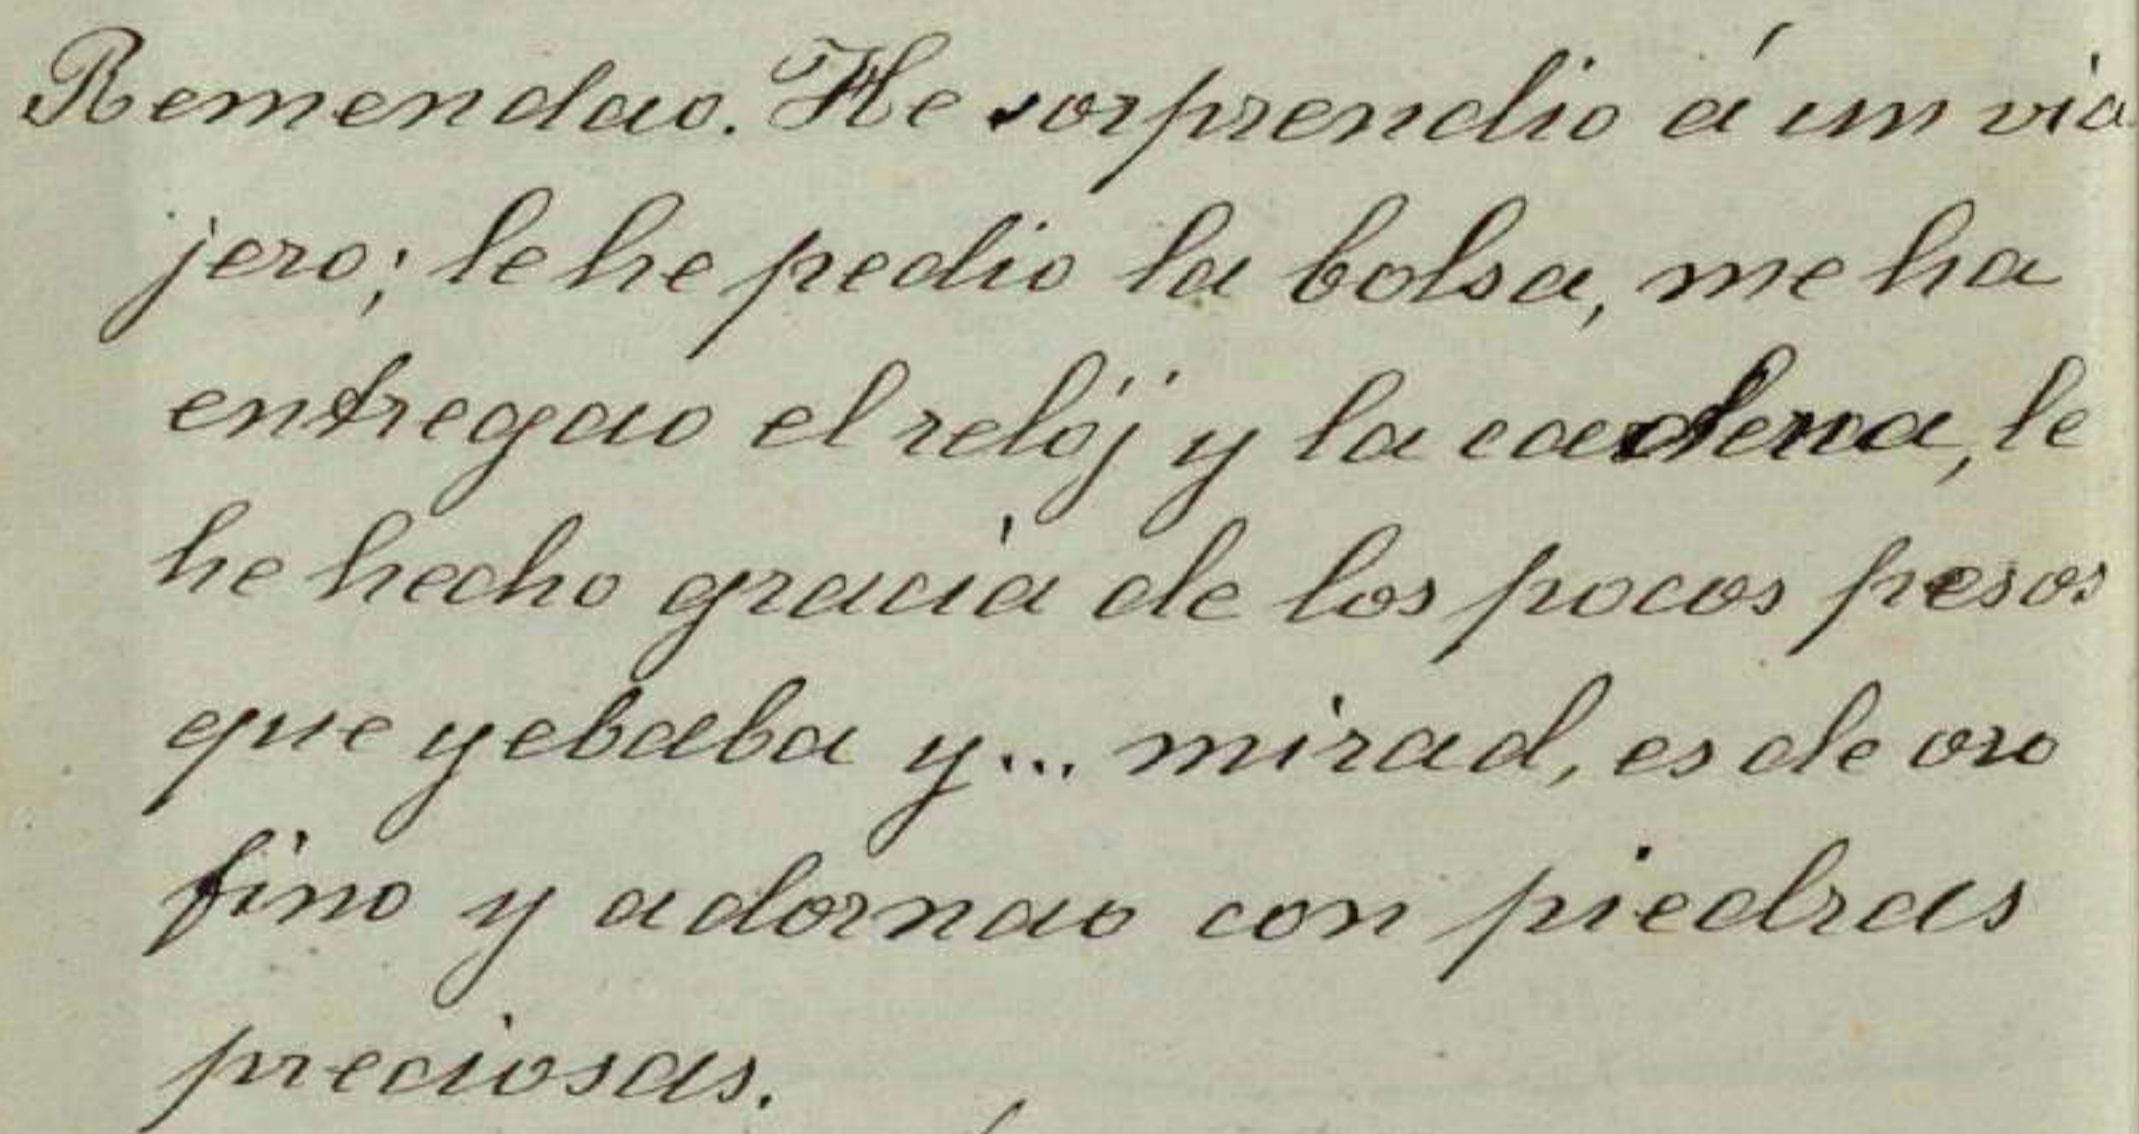 Remendao. He sorprendio á un via
jero; le he pedio la bolsa, me ha
entregao el relój y la cadena, le
he hecho gracia de los pocos pesos
que yebaba y... mirad, es de oro
fino y adornao con piedras
preciosas.